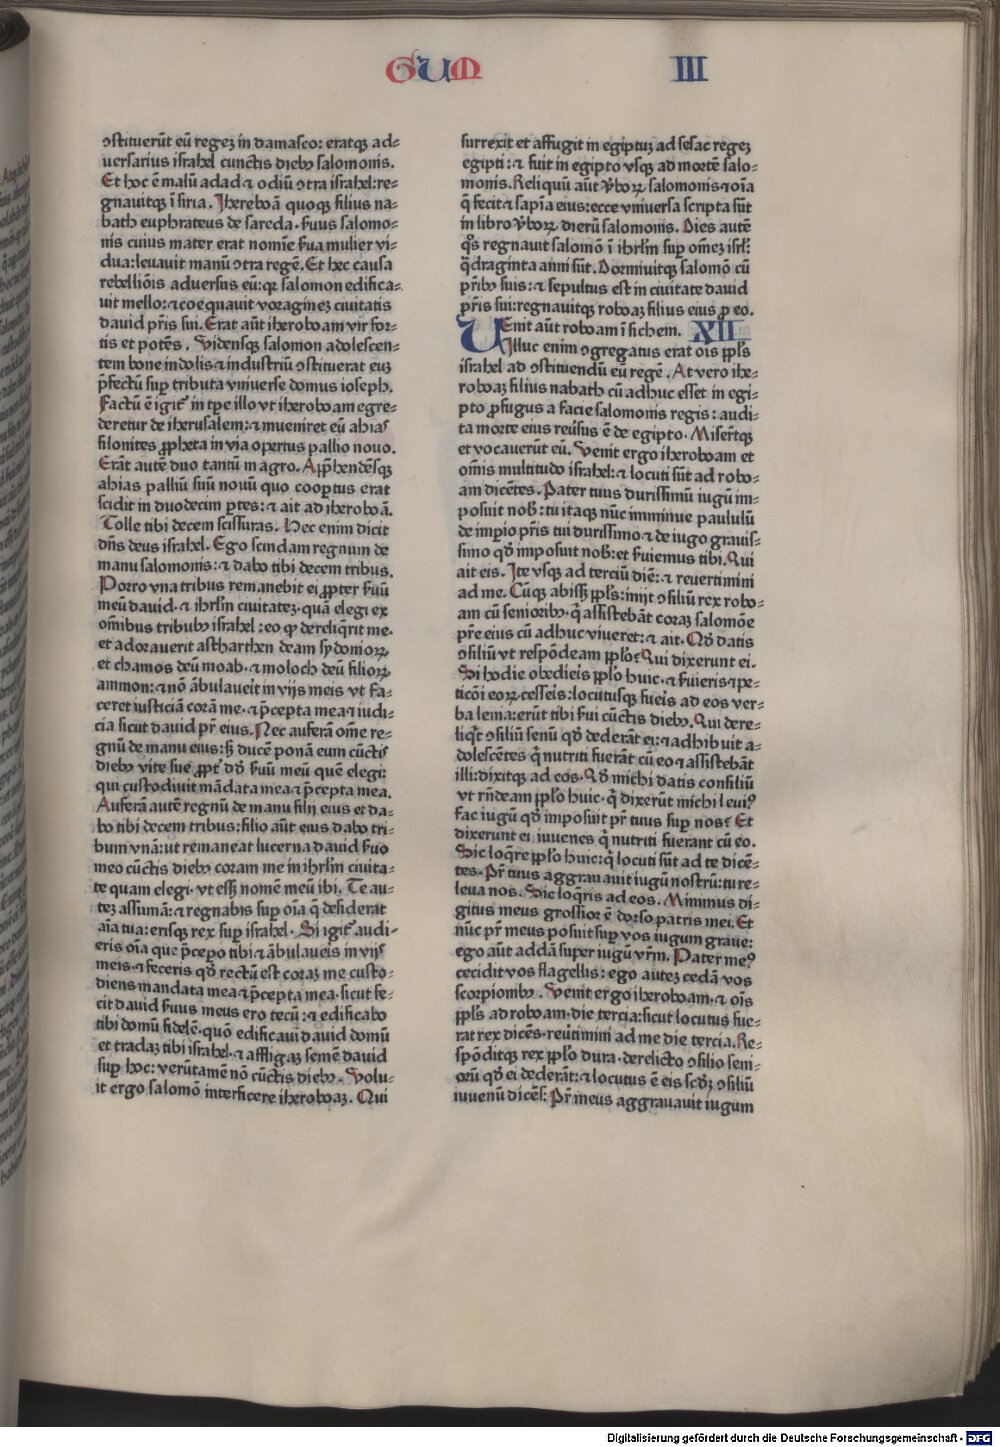 GUM III
ↄstituerūt eū regeʒ in damasco: eratqʒ ad=
uersarius israhel cunctis diebꝰ salomonis.
Et hoc ē malū adad ⁊ odiū ↄtra israhel: re=
gnauitqʒ ī siria. Iheroboā quoqʒ filius na=
bath euphrateus de sareda. ẜuus salomo=
nis cuius mater erat nomīe ẜua mulier vi=
dua: leuauit manū ↄtra regē. Et hec causa
rebellōis aduersus eū: qꝛ salomon edifica=
uit mello: ⁊ coequauit voragineʒ ciuitatis
dauid pr̄is sui. Erat aūt iheroboam vir for=
tis et potēs. Vidensqʒ salomon adolescen=
tem bone indolis ⁊ industriū ↄstituerat euʒ
p̄fectū suꝑ tributa vniuerse domus ioseph.
Factū ē igit᷒ in tꝑe illo vt iheroboam egre=
deretur de iherusalem: ⁊ inueniret eū ahias
silonites ꝓpheta in via opertus pallio nouo.
Erāt autē duo tantū in agro. Apꝓhendēsqʒ
ahias palliū suū nouū quo cooꝑtus erat
scidit in duodecim ꝑtes: ⁊ ait ad iheroboā.
Tolle tibi decem scissuras. Hec enim dicit
dn̄s deus israhel. Ego scindam regnum de
manu salomonis: ⁊ dabo tibi decem tribus.
Porro vna tribus remanebit ei ꝓpter ẜuū
meū dauid· ⁊ ihrl̄m ciuitateʒ· quā elegi ex
om̄ibus tribubꝰ israhel: eo ꝙ dereliq̄rit me·
et adorauerit astharthen deam sydonioꝝ·
et chamos deū moab· ⁊ moloch deū filioꝝ
ammon: ⁊ nō ābulaueīt in vijs meis vt fa=
ceret iusticiā corā me· ⁊ p̄cepta mea ⁊ iudi=
cia sicut dauid pr̄ eius. Nec auferā om̄e re=
gnū de manu eius: sꝫ ducē ponā eum cūctis
diebꝰ vite sue ꝓpt᷒ dd̄ ẜuū meū quē elegi:
qui custodiuit mādata mea ⁊ p̄cepta mea.
Auferā autē regnū de manu filij eius et da=
bo tibi decem tribus: filio aūt eius dabo tri=
bum vnā: ut remaneat lucerna dauid ẜuo
meo cūctis diebꝰ coram me in ihrl̄m ciuita=
te quam elegi· vt esſꝫ nomē meū ibi. Te au=
teʒ assumā: ⁊ regnabis suꝑ oīa q̄ desiderat
aīa tua: erisqʒ rex suꝑ israhel. Si igit᷒ audi=
eris oīa que p̄cepo tibi ⁊ ābulaueis in vijs
meis ⁊ feceris qd̄ rectū est coraʒ me custo=
diens mandata mea ⁊ p̄cepta mea· sicut fe=
cit dauid ẜuus meus ero tecū: ⁊ edificabo
tibi domū fidelē· quō edificaui dauid domū
et tradaʒ tibi israhel· ⁊ affligaʒ semē dauid
suꝑ hoc: verūtamē nō cūctis diebꝰ. Volu=
it ergo salomō interficere iheroboaʒ. Qui
surrexit et affugit in egiptuʒ ad sesac regeʒ
egipti: ⁊ fuit in egipto vsqʒ ad mortē salo=
monis. Reliquū aūt v̄boꝝ salomonis ⁊ oīa
q̄ fecit ⁊ sapīa eius: ecce vniuersa scripta sūt
in libro v̄boꝝ dierū salomonis. Dies autē
qͦs regnauit salomō ī ihrl̄m suꝑ om̄eʒ isrl̄:
q̄draginta anni sūt. Dormiuitqʒ salomō cū
pr̄ibꝰ suis: ⁊ sepultus est in ciuitate dauid
pr̄is sui: regnauitqʒ roboaʒ filius eius ꝓ eo.
VEnit aūt roboam ī sichem. XII
Illuc enim ↄgregatus erat oīs ppl̄s
israhel ad ↄstituendū eū regē. At vero ihe=
roboaʒ filius nabath cū adhuc esset in egi=
pto ꝓfugus a facie salomonis regis: audi=
ta morte eius reūsus ē de egipto. Miser̄tqʒ
et vocauerūt eū. Venit ergo iheroboam et
om̄is multitudo israhel: ⁊ locuti sūt ad robo=
am dicētes. Pater tuus durissimū iugū im=
posuit nob̄: tu itaqʒ nūc imminue paululū
de imꝑio pr̄is tui durissimo ⁊ de iugo grauis=
simo qd̄ imposuit nob̄: et ẜuiemus tibi. Qui
ait eis. Ite vsqʒ ad terciū diē: ⁊ reuertimini
ad me. Cūqʒ abissꝫ ppl̄s: inijt ↄsiliū rex robo=
am cū senioribꝰ· q̄ assistebāt coraʒ salomōe
pr̄e eius cū adhuc viueret: ⁊ ait. Qd̄ datis
ↄsiliū vt respōdeam ppl̄o? Qui dixerunt ei.
Si hodie obedieis ppl̄o huic· ⁊ ẜuieris ⁊ pe=
ticōi eoꝝ cesseis: locutusqʒ fueis ad eos ver=
ba lenia: erūt tibi ẜui cūctis diebꝰ. Qui dere=
liqͭt ↄsiliū senū qd̄ dederāt ei: ⁊ adhibuit a=
dolescētes q̄ nutriti fuerāt cū eo ⁊ assistebāt
illi: dixitqʒ ad eos. Qd̄ michi datis consiliū
vt rn̄deam ppl̄o huic· q̄ dixerūt michi leui?
fac iugū qd̄ imposuit pr̄ tuus suꝑ nos? Et
dixerunt ei iuuenes q̄ nutriti fuerant cū eo.
Sic loq̄re ppl̄o huic: q̄ locuti sūt ad te dicē=
tes. Pr̄ tuus aggrauauit iugū nostrū: tu re=
leua nos. Sic loq̄ris ad eos. Minimus di=
gitus meus grossior ē dorso patris mei. Et
nūc pr̄ meus posuit suꝑ vos iugum graue:
ego aūt addā super iugū vr̄m. Pater me?
cecidit vos flagellis: ego auteʒ cedā vos
scorpionibꝰ. Venit ergo iheroboam· ⁊ oīs
ppl̄s ad roboam· die tercia: sicut locutus fue=
rat rex dicēs· reūtimini ad me die tercia. Re=
spōditqʒ rex ppl̄o dura· derelicto ↄsilio seni=
orū qd̄ ei dederāt: ⁊ locutus ē eis scd̄ʒ ↄsiliū
iuuenū dicēs: Pr̄ meus aggrauauit iugum
Digitalisierung gefördert durch die Deutsche Forschungsgemeinschaft - DFG